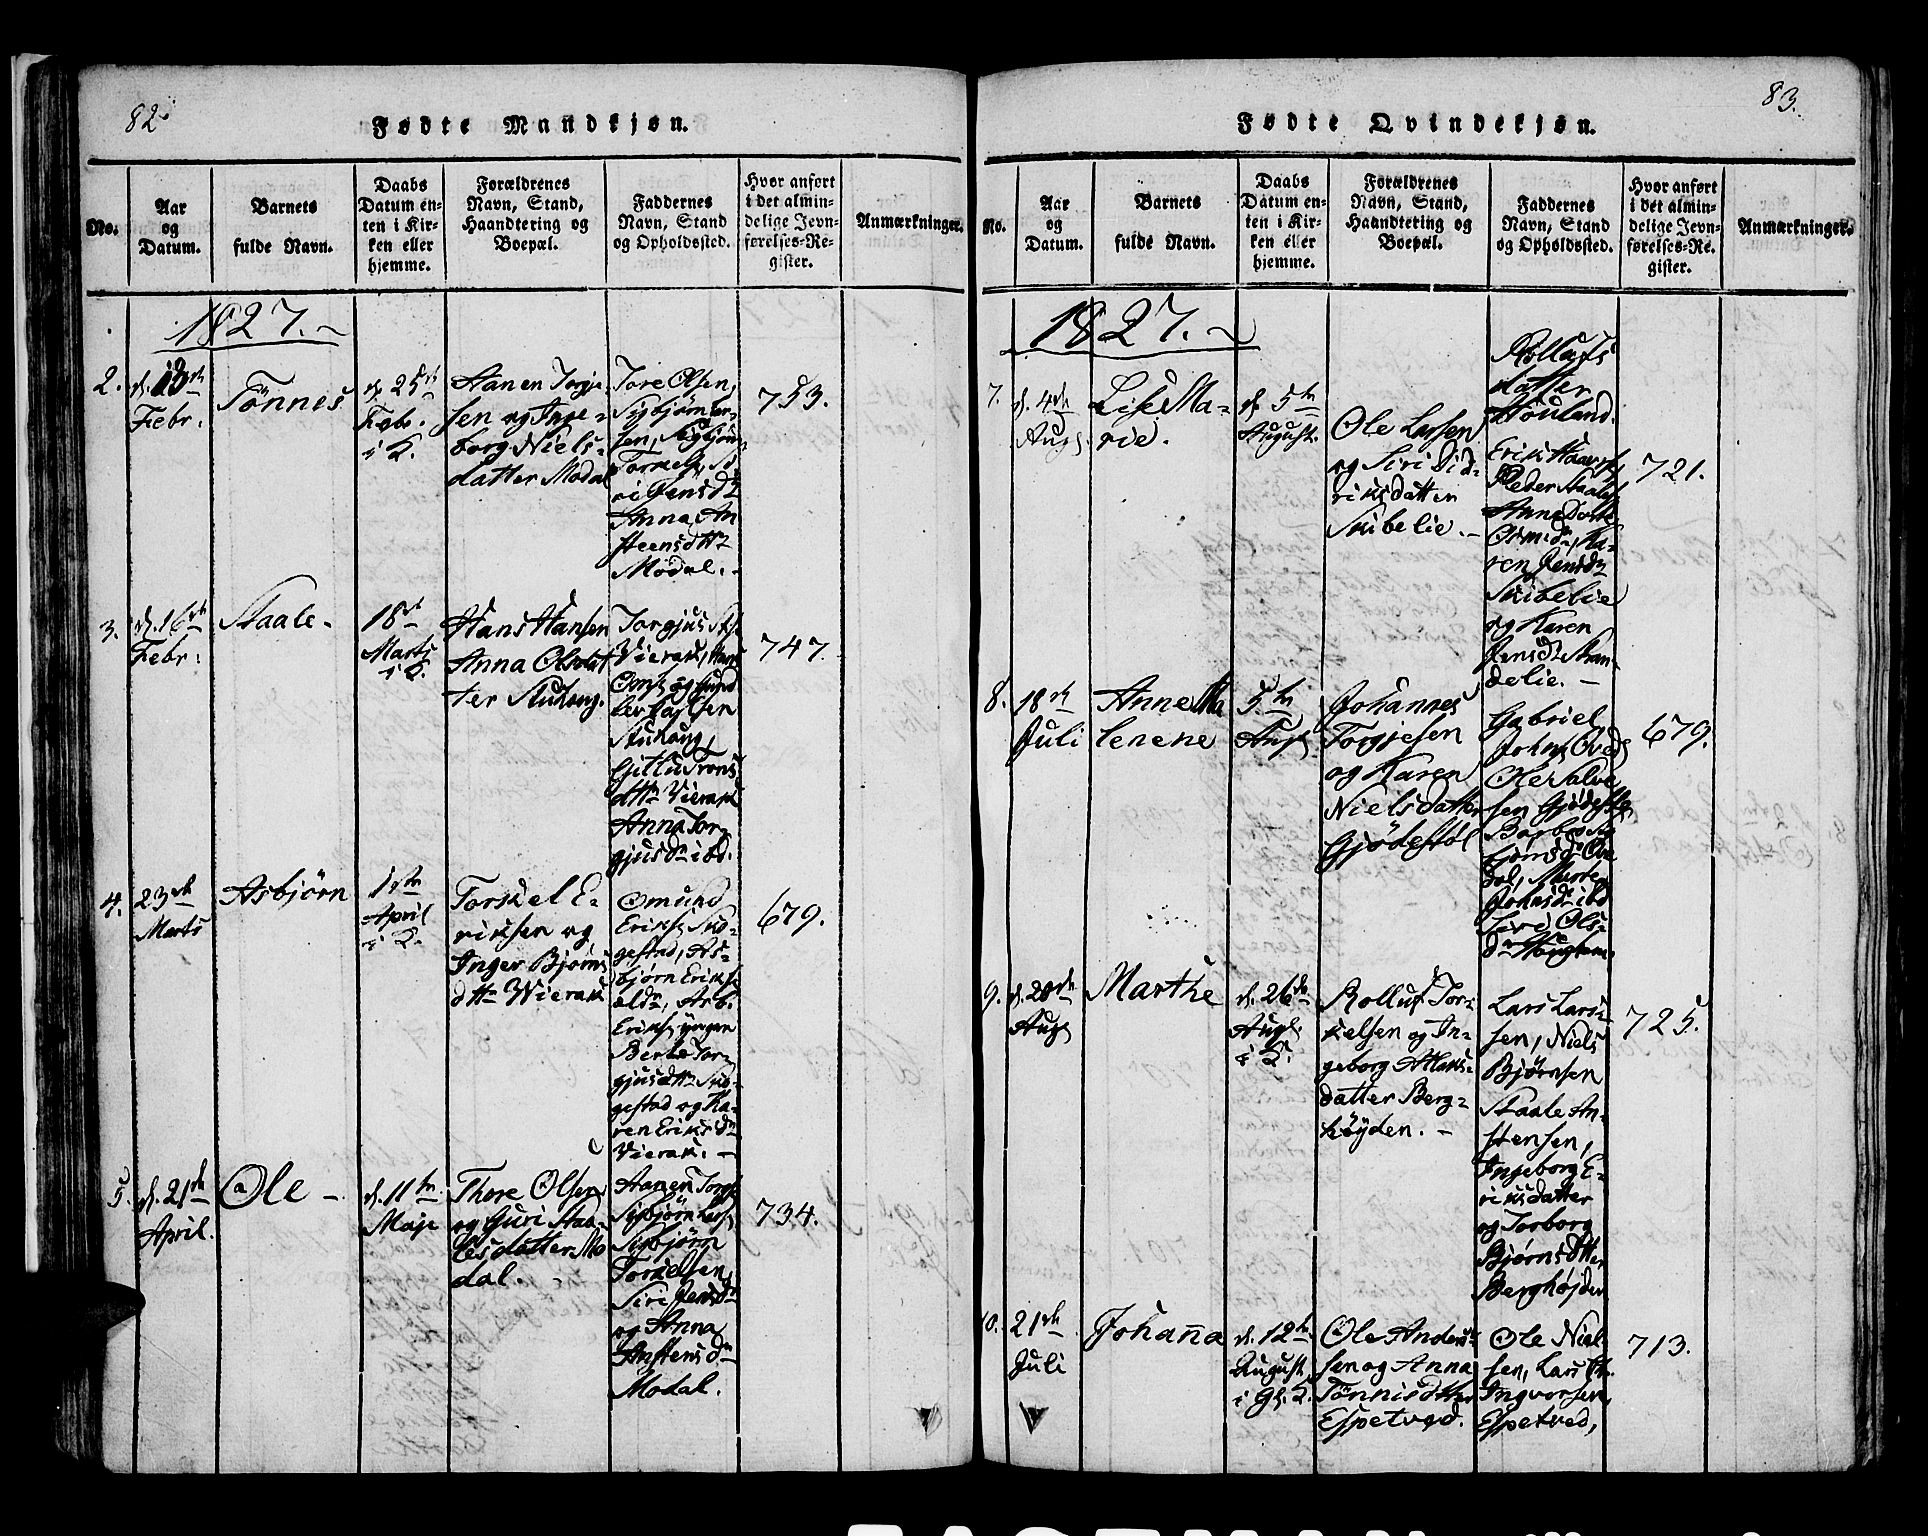 82.
Fødte Mandkjøn.
No.
Aar
og
Datum.
Barnets
fulde Navn.
Daabs
Datum en-
ten i Kir-
ken eller
hjemme.
Forældrenes
Navn, Stand,
Haandtering og
Boepæl.
Faddernes
Navn, Stand
og Opholdssted.
Hvor anført
i det almin-
delige Jevn-
førelses-Re-
gister.
Anmærkninger.
1827.
2.
d. 13de
Febr.
Tönnes
d. 25de
Febr.
i K.
Hanen Torgje-
sen og Inge-
borg Niels-
datter Modal
Tore Olsen,
Sigbjørn
Anna An
steensdttr
Modal.
753.
3.
d. 16de
Febr:
Staale
18de
Marts
i K.
Hans Hansen
Anna Olsdat
ter Stuhaug.
Torgjus
Vierak,
Stuhaug,
Gitlu Trons
dttr Vierak
Anna Tor
gjusdr ibd.
747.
4.
23de
Marts
Asbjørn
1ste
April
i K.
Torkel E-
riksen og
Inger Bjørns
dttr Wierak
Omund
Eriks, Sko-
gestad, As-
bjørn Eriks
eldr, Asb.
Eriks, yngre
Berte Tor-
gjusdttr Sko-
gestad og Ka-
ren Eriksdr
Vierak.
679.
5.
d. 21de
April.
Ole
d. 11te
Maje
Thore Olsen
og Guri Staa-
lesdatter Mo
dal.
Hanen Torgj
Sigbjørn Lars
Sigbjørn
Torkelsen,
Siri Jensdr
og Anna
Anstensdr
Modal.
734.
83.
Fødte Qvindekjøn.
No.
Aar
og
Datum.
Barnets
fulde Navn.
Daabs
Datum en-
ten i Kir-
ken eller
hjemme.
Forældrenes
Navn, Stand,
Haandtering og
Boepæl.
Faddernes
Navn, Stand
og Opholdssted.
Hvor anført
i det almin-
delige Jevn-
førelses-Re-
gister.
Anmærkninger.
1827.
7.
d. 4de
Aug.
Lise Ma-
rie.
d. 5te
August.
Ole Larsen
og Siri Did-
riksdatter
Skibelie.
Rollufs
datter
Höuland.
Erik
Peder
Anne
Ka-
ren Jensdr
Skibelie
og Karen
Jensdr Stran-
delie.
721.
8.
18de
Juli
Anne Ma
lenene
5te
Aug.
Johannes
Torgjesen
og Karen
Nielsdatter
Gjödestöl
Gabriel
Johns,
Ole Salve
sen Gjödestöl
Johnsdr ibd
Siri Ols-
dr
679.
9.
d. 20de
Aug.
Marthe
d. 26de
Aug.
i K.
Rolluf Tor-
kelsen og In-
geborg Aslaks-
datter Berg-
höyden.
Lars Lars-
sen, Niels
Bjørnsen
Staale An-
stensen,
Ingeborg E-
riksdatter
og Torborg
Bjørnsdtter
Berghøjden
725.
10.
21de
Juli
Johanna
d. 12te
August.
i Gl. K.
Ole Anders-
sen og Anna
Tönnisdtter
Espetved.
Ole Niel
sen, Lars
Ingvorsen
Espetved,
713.